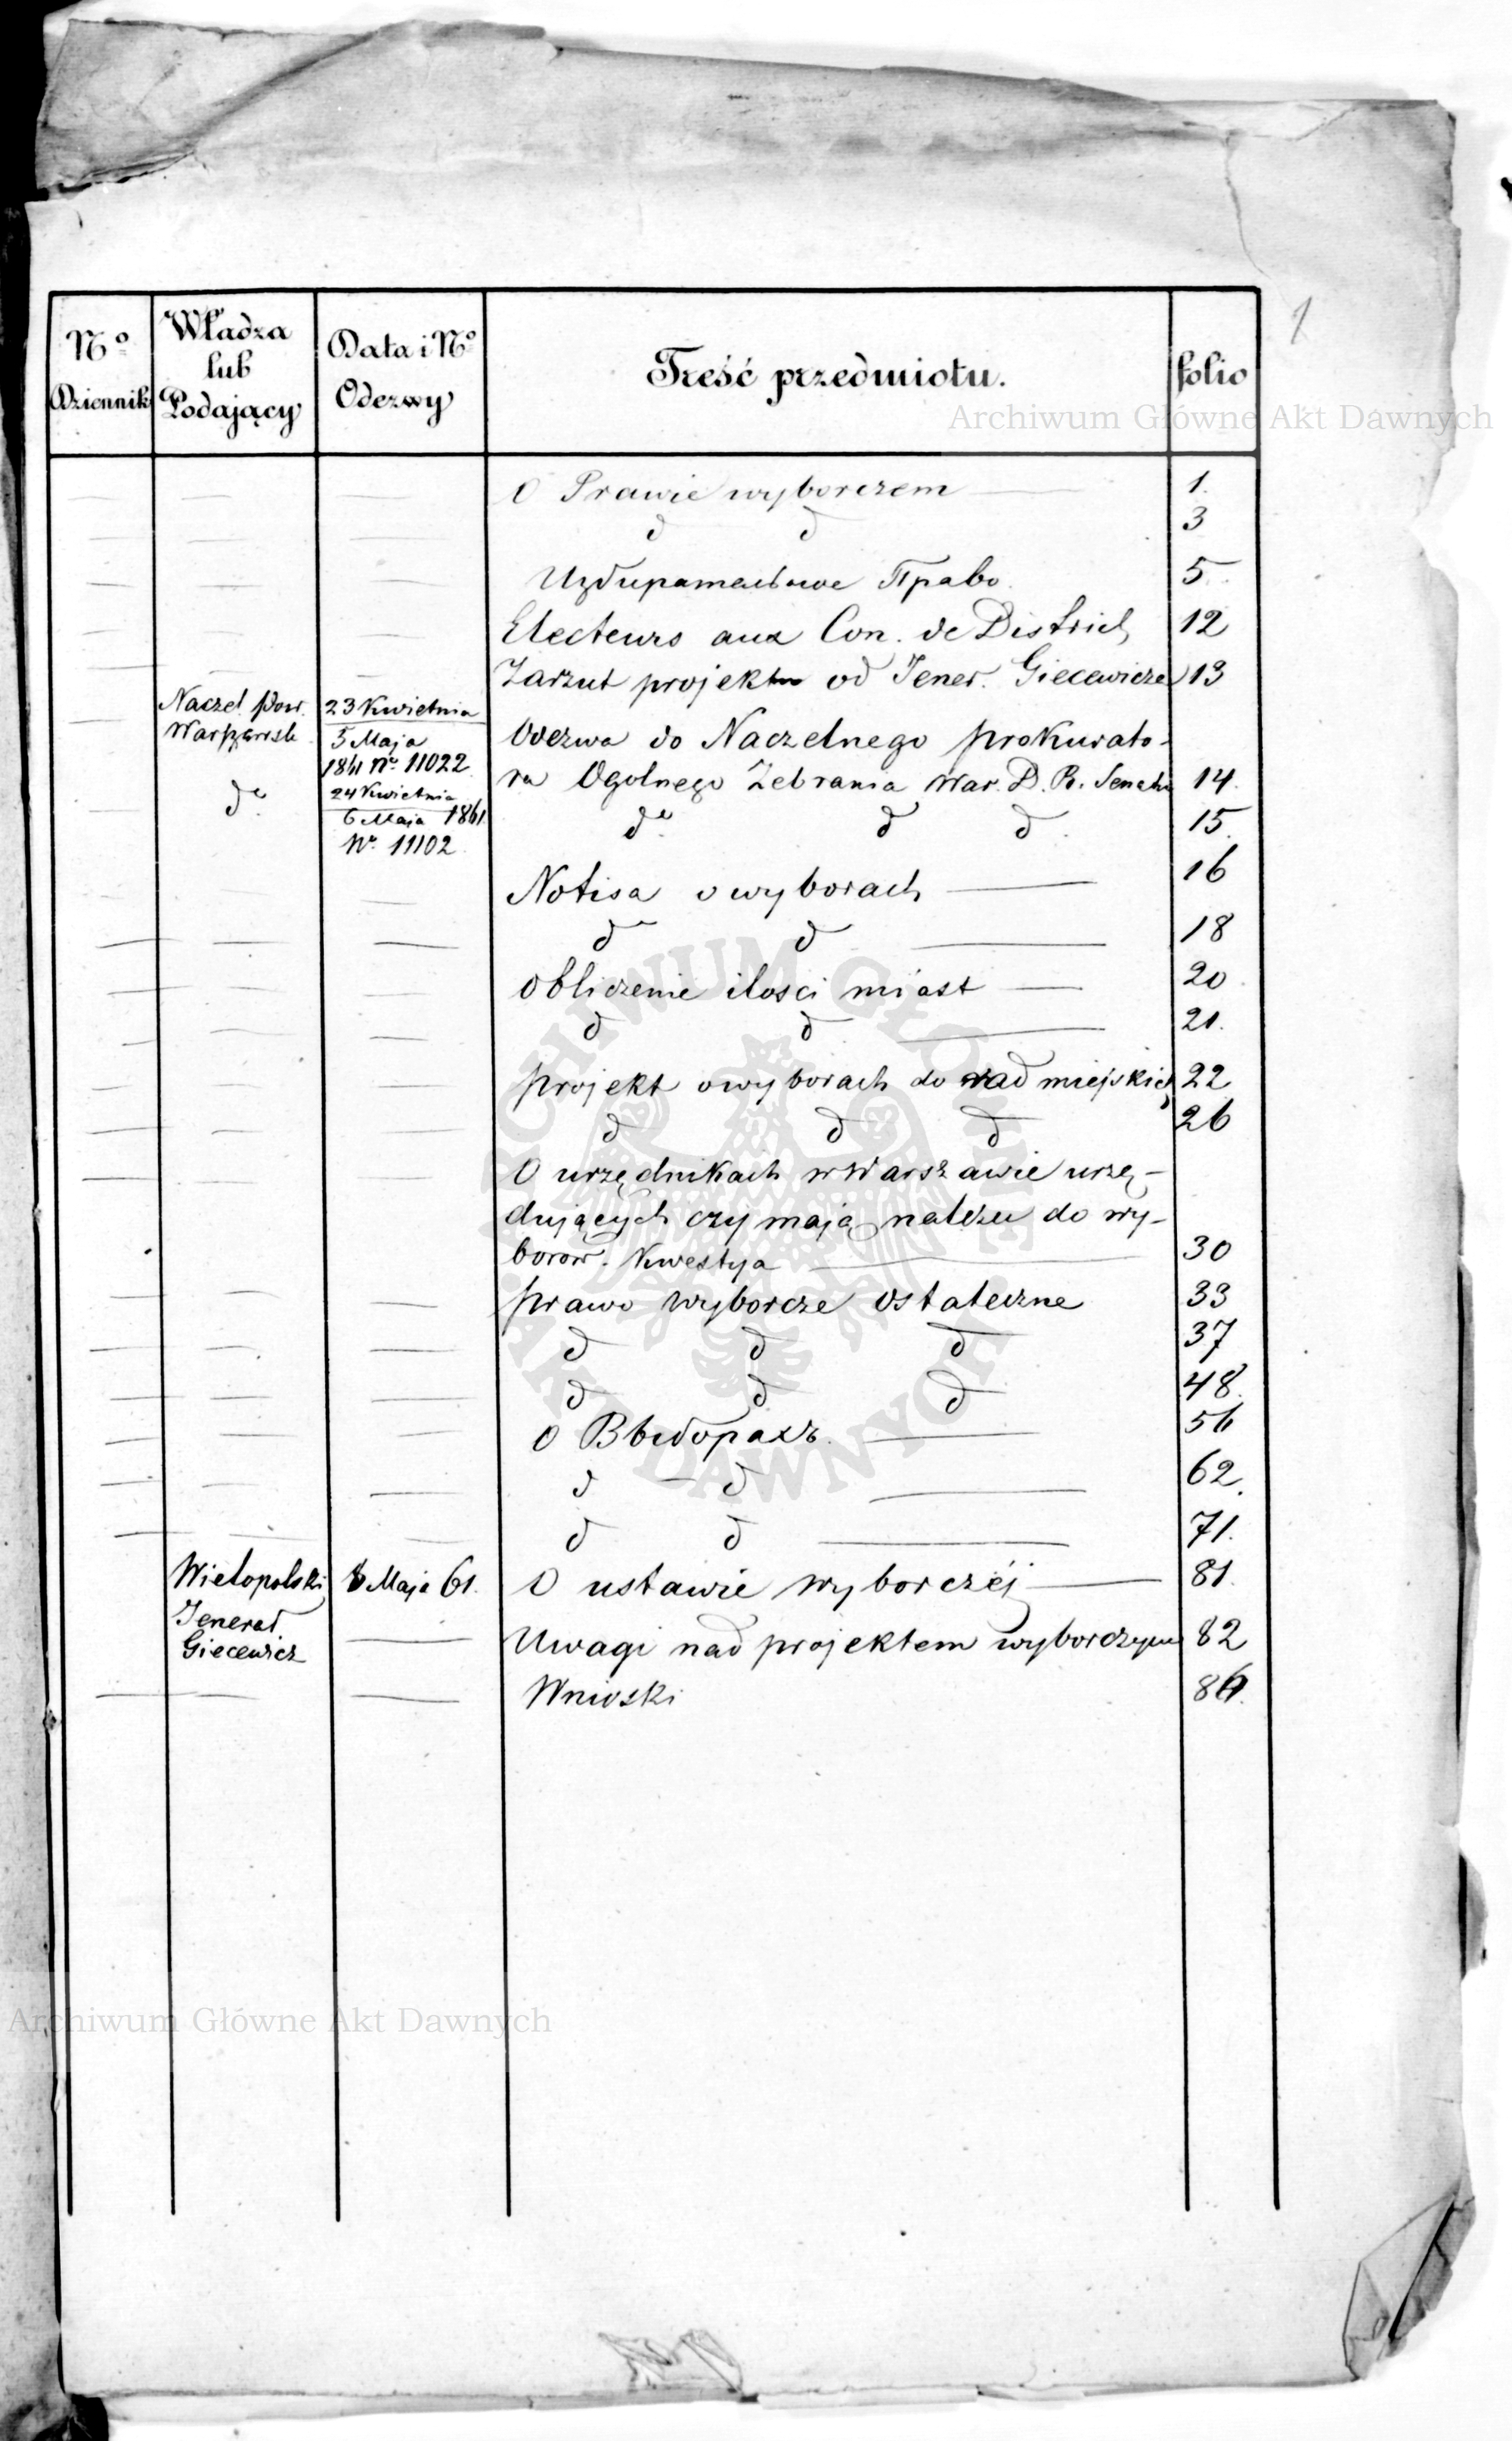 1
Nº Dziennik
Władza lub Podający
Data i Nº Odezwy
Treść przedmiotu.
folio
Archiwum Główne Akt Dawnych
O Prawie wyborczem 1.
d d 3
Право 5
Electeurs aux Con. de District 12
Zarzut projektu od Jener. Giecewicza 13
Naczel. Pow. 23 Kwietnia
Warszawsk 5 Maja Odezwa do Naczelnego prokurato-
1861 Nr. 11022 ra Ogolnego Zebrania War. D. R. Senatu 14.
do. 24 Kwietnia
6 Maja 1861 do. d d. 15.
Nr. 11102
Notisa o wyborach 16
do d 18
Obliczenie ilosci miast 20
d d 21.
projekt o wyborach do rad miejskich 22
d d d 26
O urzędnikach w Warszawie urzę-
dujących czy mają należeć do wy-
borow. Kwestya 30
prawo wyborcze ostateczne 33
d d d 37
d d d 48.
О Выборахъ. 56
d d 62.
d d 71.
Wielopolski 8 Maja 61. O ustawie wyborczéj 81.
Jenerał
Giecewicz Uwagi nad projektem wyborczym 82
Wnioski 86.
ARCHIWUM GŁÓWNE AKT DAWNYCH
Archiwum Główne Akt Dawnych